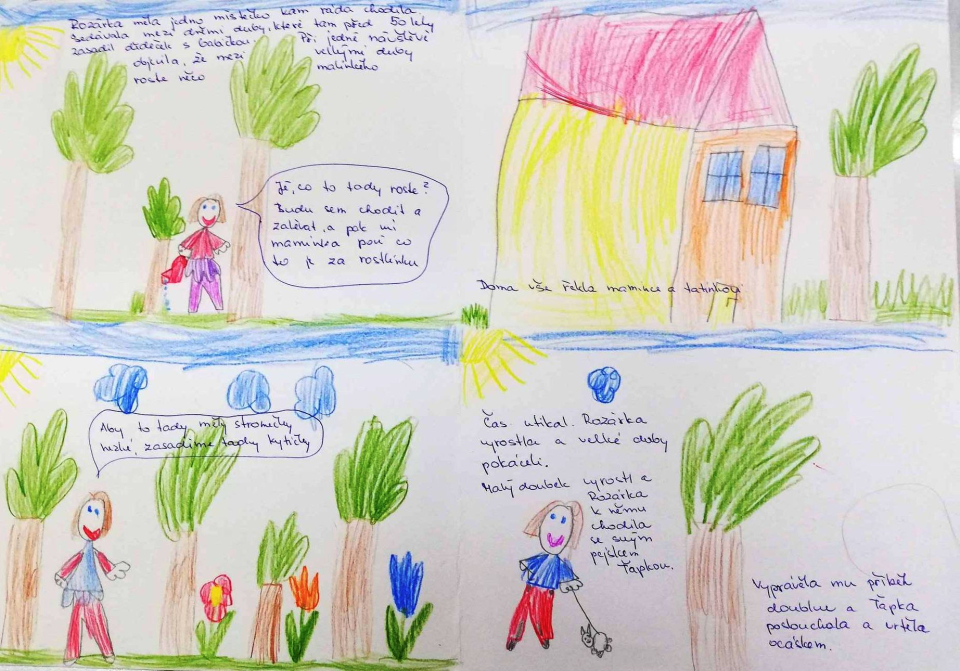 Rozárka měla jedno místečko kam ráda chodila
Sedávala mezi dvěmi duby, které tam před 50 lety
zasadil dědeček s babičkou. Při jedné návštěvě
objevila, že mezi velkými duby
roste něco malinkého
Jé, co to tady roste?
Budu sem chodit a
zalévat, a pak mi
maminka poví co
to je za rostlinku
Doma vše řekla mamince a tatínkovi
Aby to tady měly stromečky
hezké, zasadíme tady kytičky
Čas utíkal. Rozárka
vyrostla a velké duby
pokáceli.
Malý doubek vyrostl a
Rozárka
k němu
chodila
se svým
pejskem
Ťapkou.
Vyprávěla mu příběh
doubku a Ťapka
poslouchala a vrtěla
ocáskem.